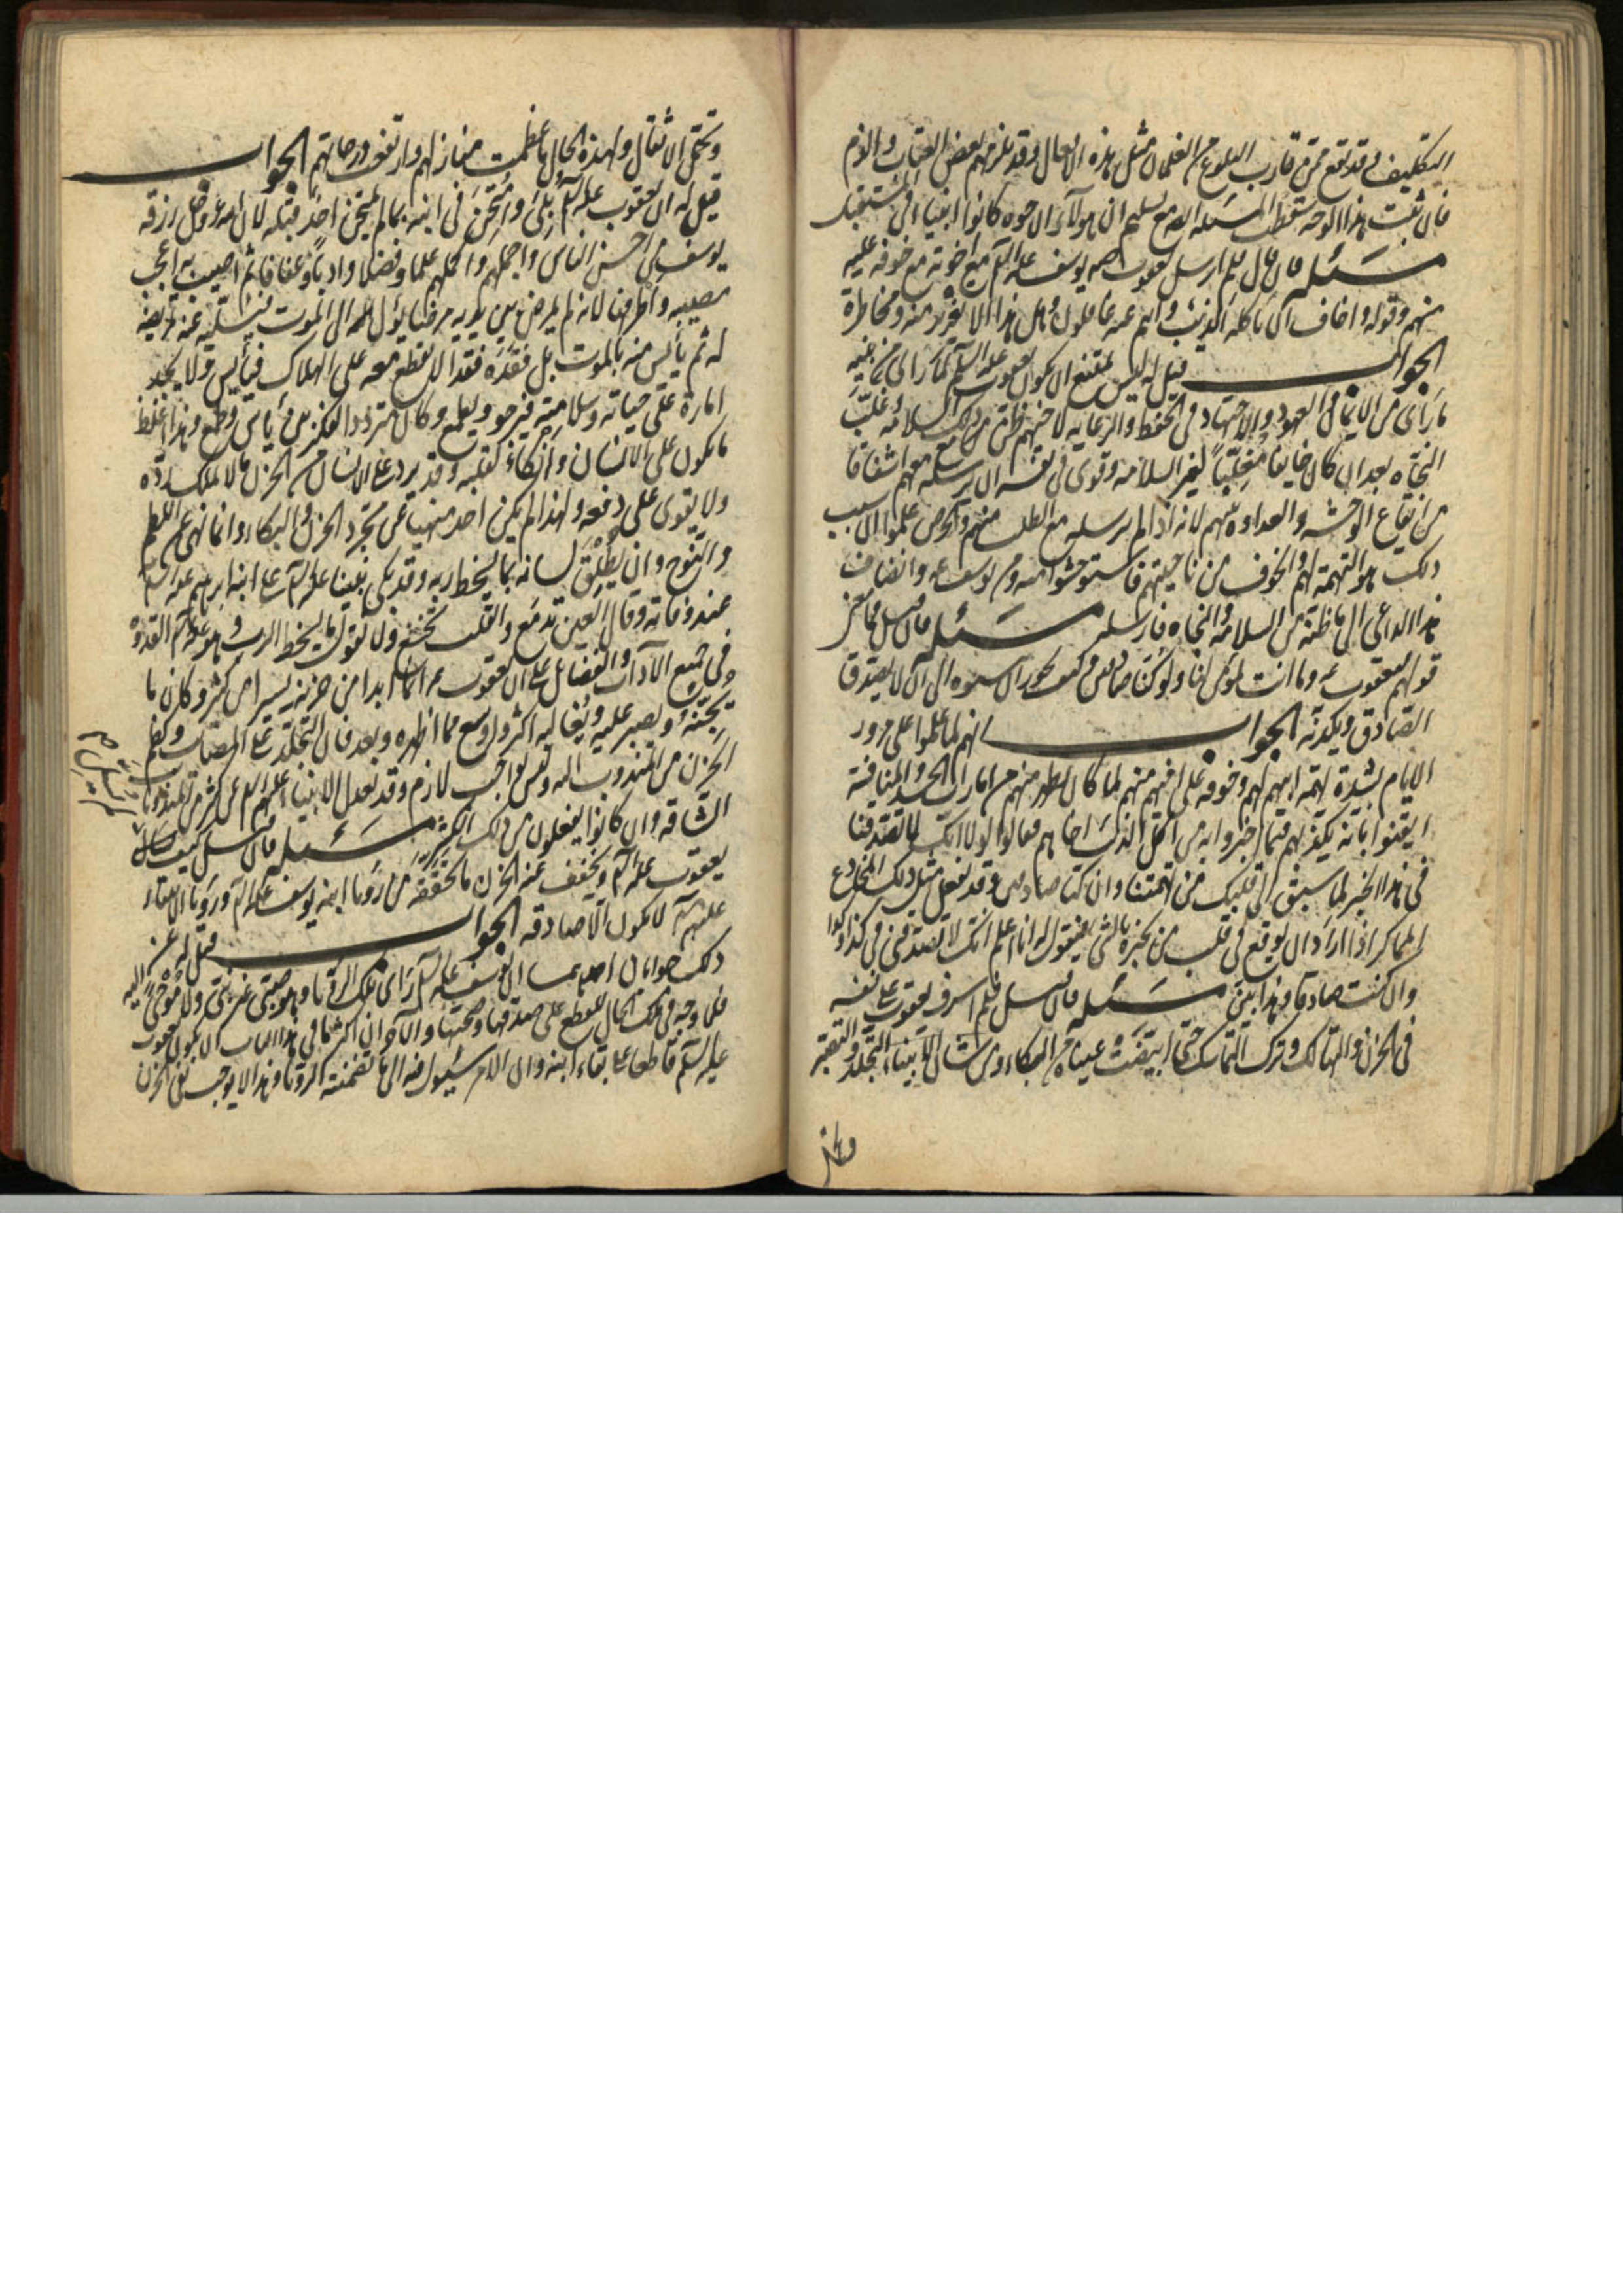 التكليف وقد تقع ممن قارب البلوغ من الغلمان مثل هذه الافعال وقد يلزمهم بعض العتاب واللوم
فان ثبت هذا الوجه سقطت المسئله ايضا مع تسليم ان هولاء الاخوه كانوا انبيا في المستقبل
مسئله فان قال فلم ارسل يعقوب عه يوسف عليه السلم مع اخوته مع خوفه عليه
منهم وقوله واخاف ان ياكله الذئب وانتم عنه غافلون وهل هذا الا تغرير منه ومخاطرة
الجواب قيل له ليس يمتنع ان يكون يعقوب عليه السلم لما راى من بنيه
ما راى من الايمان والعهود والاجتهاد في الحفظ والرعايه لاخيهم ظن مع ذلك السلامه وغلب
النجاه بعد ان كان خايفا مغلبا لغير السلامه وقوى في نفسه ان يرسله معهم اشفاقا
من ايقاع الوحشه والعداوه بينهم لانه اذا لم يرسله مع الطلب منهم والحرص علموا ان سبب
ذلك هو التهمة لهم والخوف من ناحيتهم فاستوحشوا منه ومن يوسف عه وانضاف
هذا الداعى الى ما ظنه من السلامه والنجاه فارسله مسئله فان قيل فما معنى
قولهم ليعقوب عه وما انت بمومن لنا ولو كنا صادقين وكيف يجوز ان ينسبوه الى انه لا يصدق
الصادق ويكذبه الجواب انهم لما علموا على مرور
الايام بشدة تهمة ابيهم لهم وخوفه على اخيهم منهم لما كان يظهر منهم من امارات الحسد والمنافسة
ايقنوا بانه يكذبهم فيما اخبروا به من اكل الذئب اخاهم فقالوا له انك لا تصدقنا
في هذا الخبر لما سبق الى قلبك من تهمتنا وان كنا صادقين وقد يفعل مثل ذلك المخادع
المماكر اذا اراد ان يوقع في قلب من يخبره بالشي فيقول له انا اعلم انك لا تصدقنى في كذا وكذا
وان كنت صادقا وهذا بين مسئله فان قيل فلم اسرف يعقوب على نفسه
في الحزن والتهالك وترك التماسك حتى ابيضت عيناه من البكاء ومن شان الانبيا التجلد والتصبر
وتحمل الاثقال ولهذه الحال ما عظمت منازلهم وارتفعت درجاتهم الجواب
قيل له ان يعقوب عليه السلم بلى وامتحن في ابنه بما لم يمتحن احد قبله لان الله عز وجل رزقه
يوسف من احسن الناس واجملهم واكملهم علما وفضلا وادبا وعفافا ثم اصيب به اعجب
مصيبه واطرفها لانه لم يمرض بين يديه مرضا يؤل الى الموت فيسليه عنه تمريضه
له ثم يأيس منه بالموت بل فقده فقدا لا يقطع معه على الهلاك فيأيس ولا يجد
امارة على حياته وسلامته فيرجو ويطمع وكان متردد الفكر بين يأس وطمع وهذا اغلظ
ما يكون على الانسان وانكاء لقلبه وقد يرد على الانسان من الحزن ما لا يملك رده
ولا يقوى على دفعه ولهذا لم يكن احد منهيا عن مجرد الحزن والبكاء وانما نهى عن اللطم
والنوح وان يطلق لسانه بما يسخط ربه وقد بكى نبينا عليه السلم على ابنه ابرهيم عليه السلم
عند وفاته وقال العين تدمع والقلب يخشع ولا نقول ما يسخط الرب وهو عليه السلم القدوه
في جميع الآداب والفضايل على ان يعقوب عه انما ابدا من حزنه يسيرا من كثير وكان ما
يخفيه ويصبر عليه ويغالبه اكثر واوسع مما اظهره وبعد فان التجلد على المصائب وكظم
الحزن من المندوب اليه وليس بواجب لازم وقد يعدل الانبياء عليهم السلم عن كثير من المندوبات
الشاقه وان كانوا يفعلون من ذلك الكثير مسئله فان قيل كيف لم يتسل
يعقوب عليه السلم ويخفف عنه الحزن ما تحققه من رؤيا ابنه يوسف عليه السلم ورؤيا الانبياء
عليهم السلم لا يكون الا صادقه الجواب قيل له عن
ذلك جوابان احدهما ان يوسف عليه السلم راى تلك الرؤيا وهو صبى غير نبى ولا موحى اليه
فلا وجه في تلك الحال للقطع على صدقها وصحتها والآخر ان اكثر ما في هذا الباب ان يكون يعقوب
عليه السلم قاطعا على بقاء ابنه وان الامر سيؤل فيه الى ما تضمنته الرؤيا وهذا لا يوجب نفى الحزن